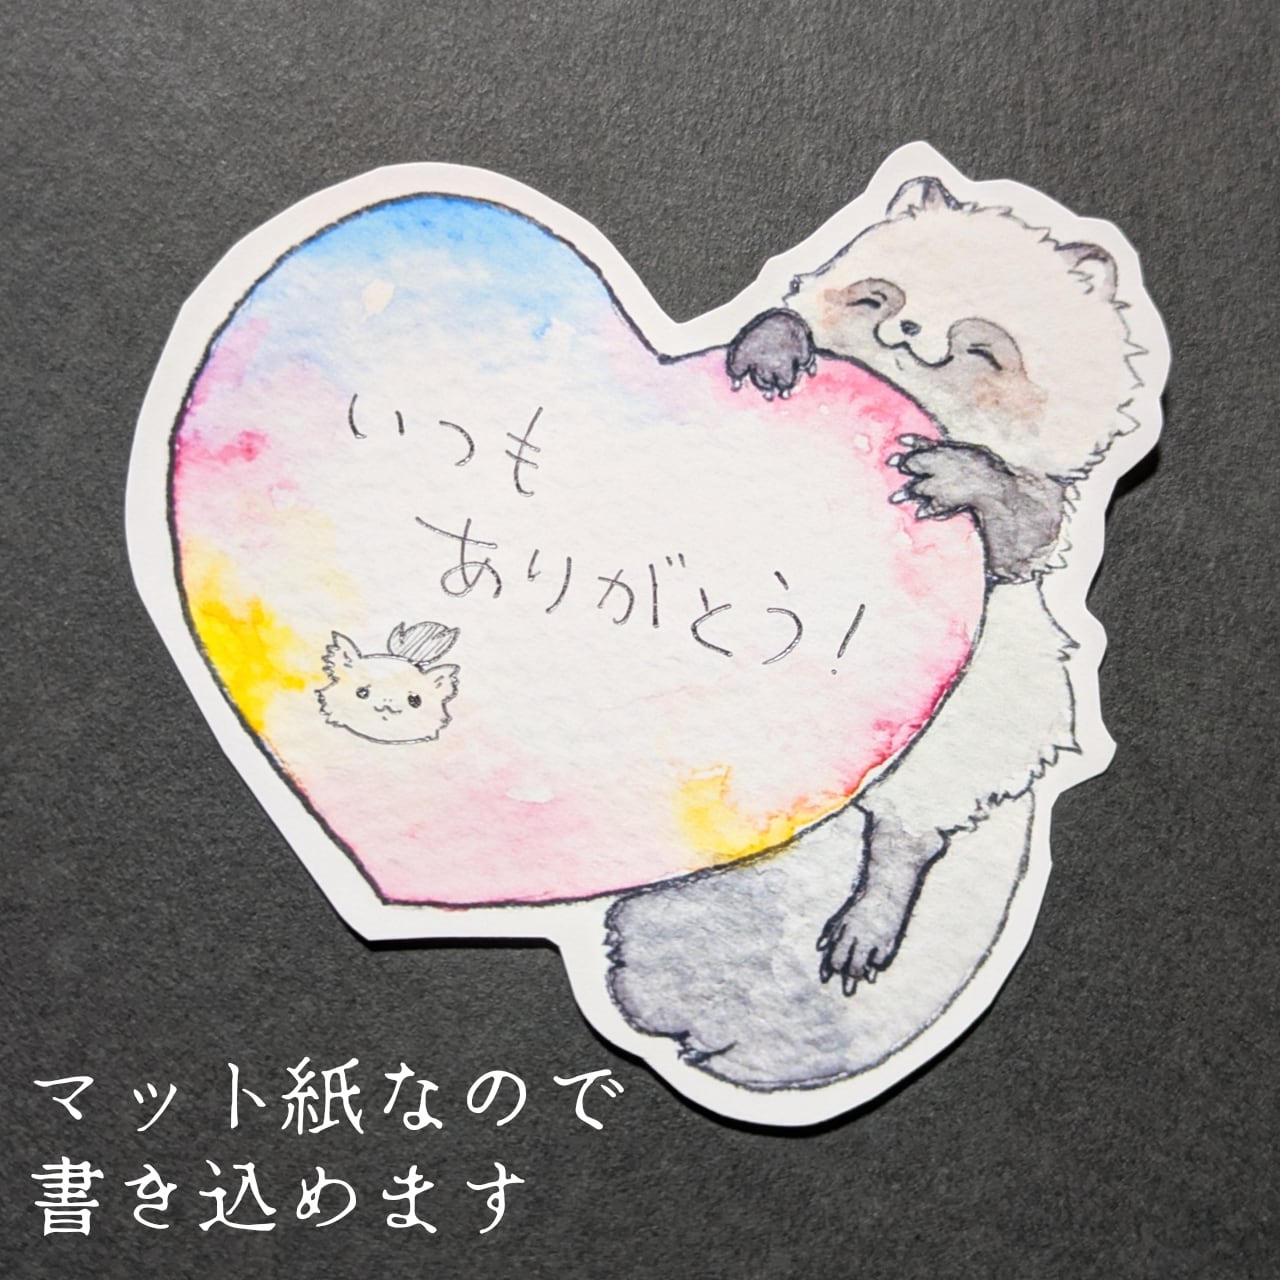 いつも
ありがとう!
マット紙なので
書き込めます